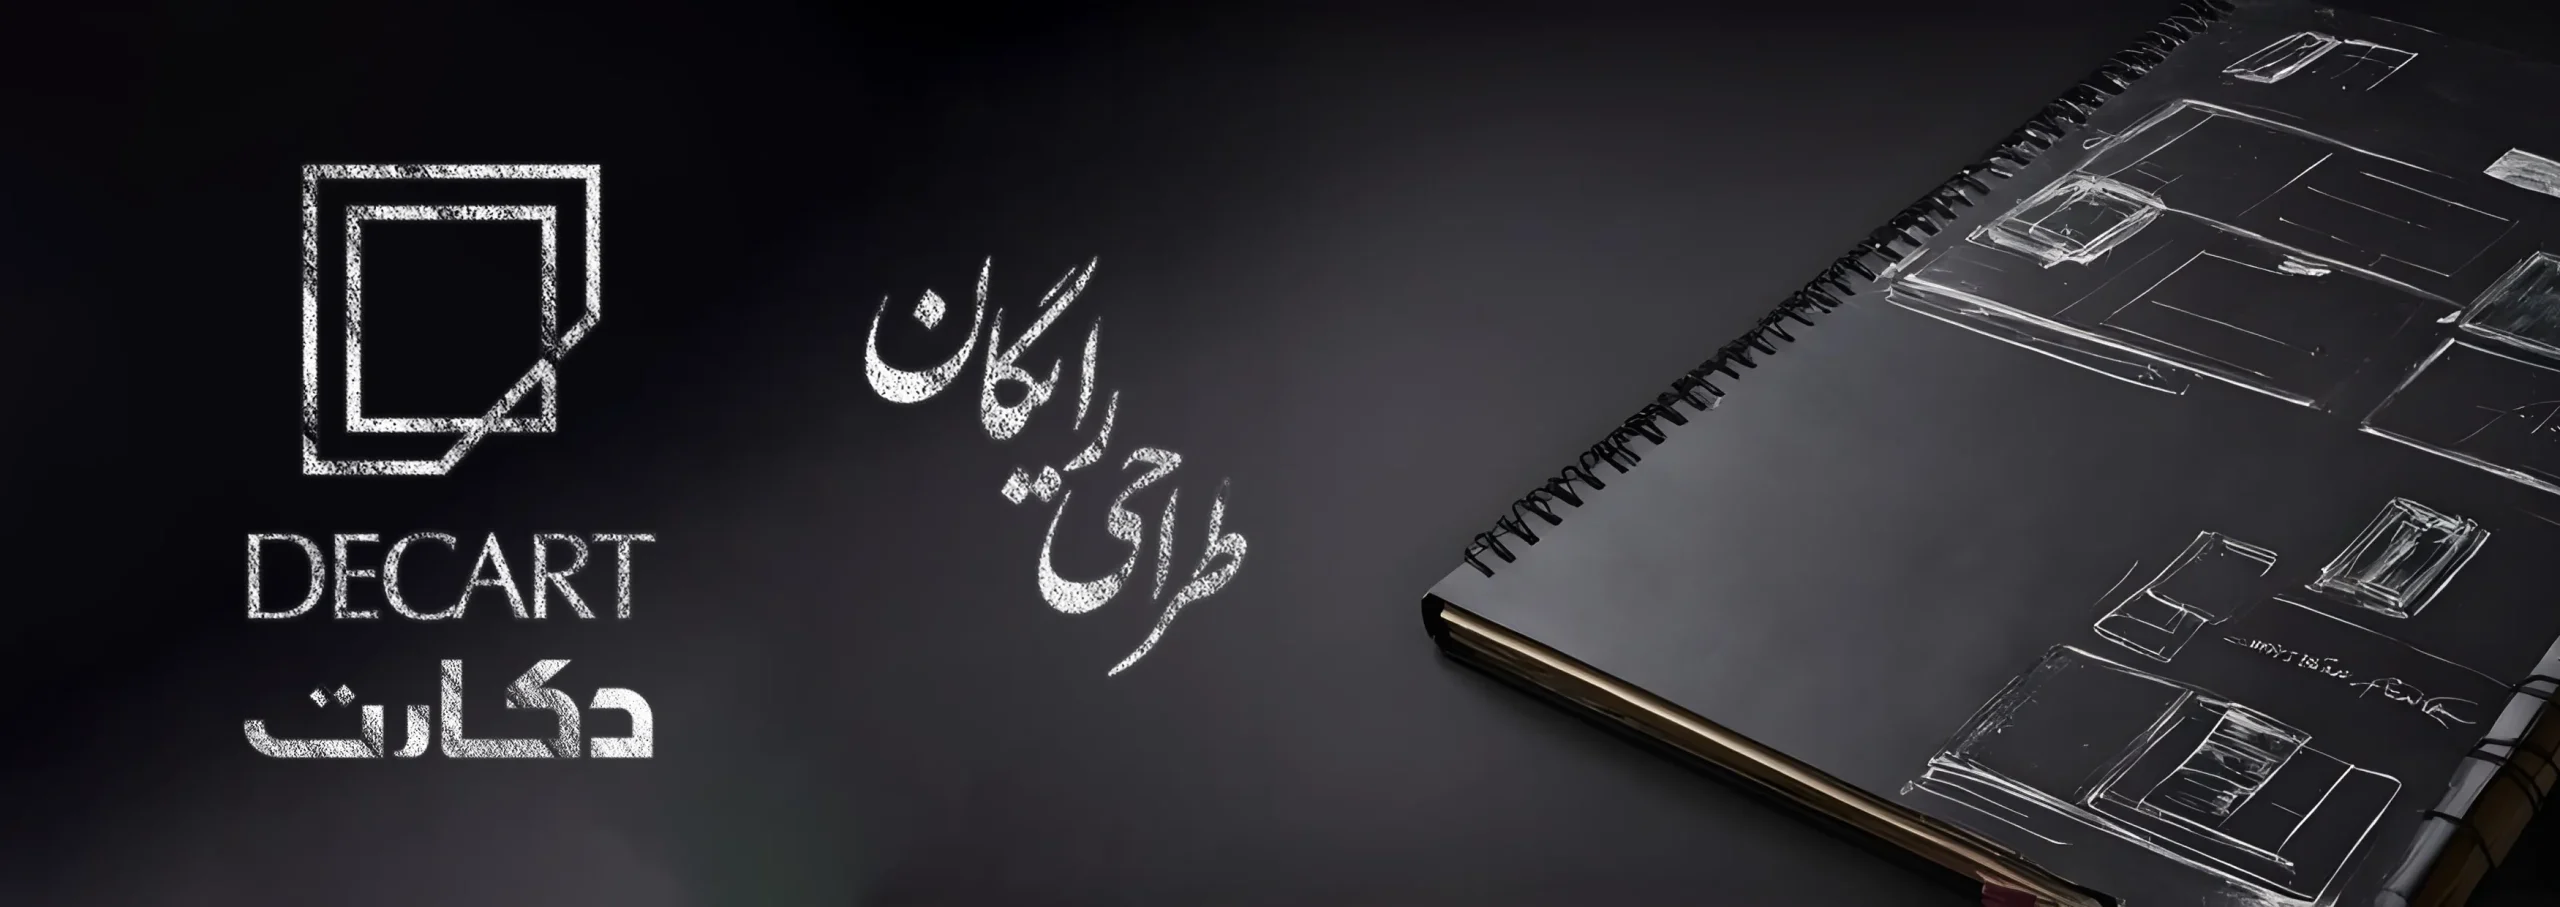 DECART
دکارت
طراحی رایگان